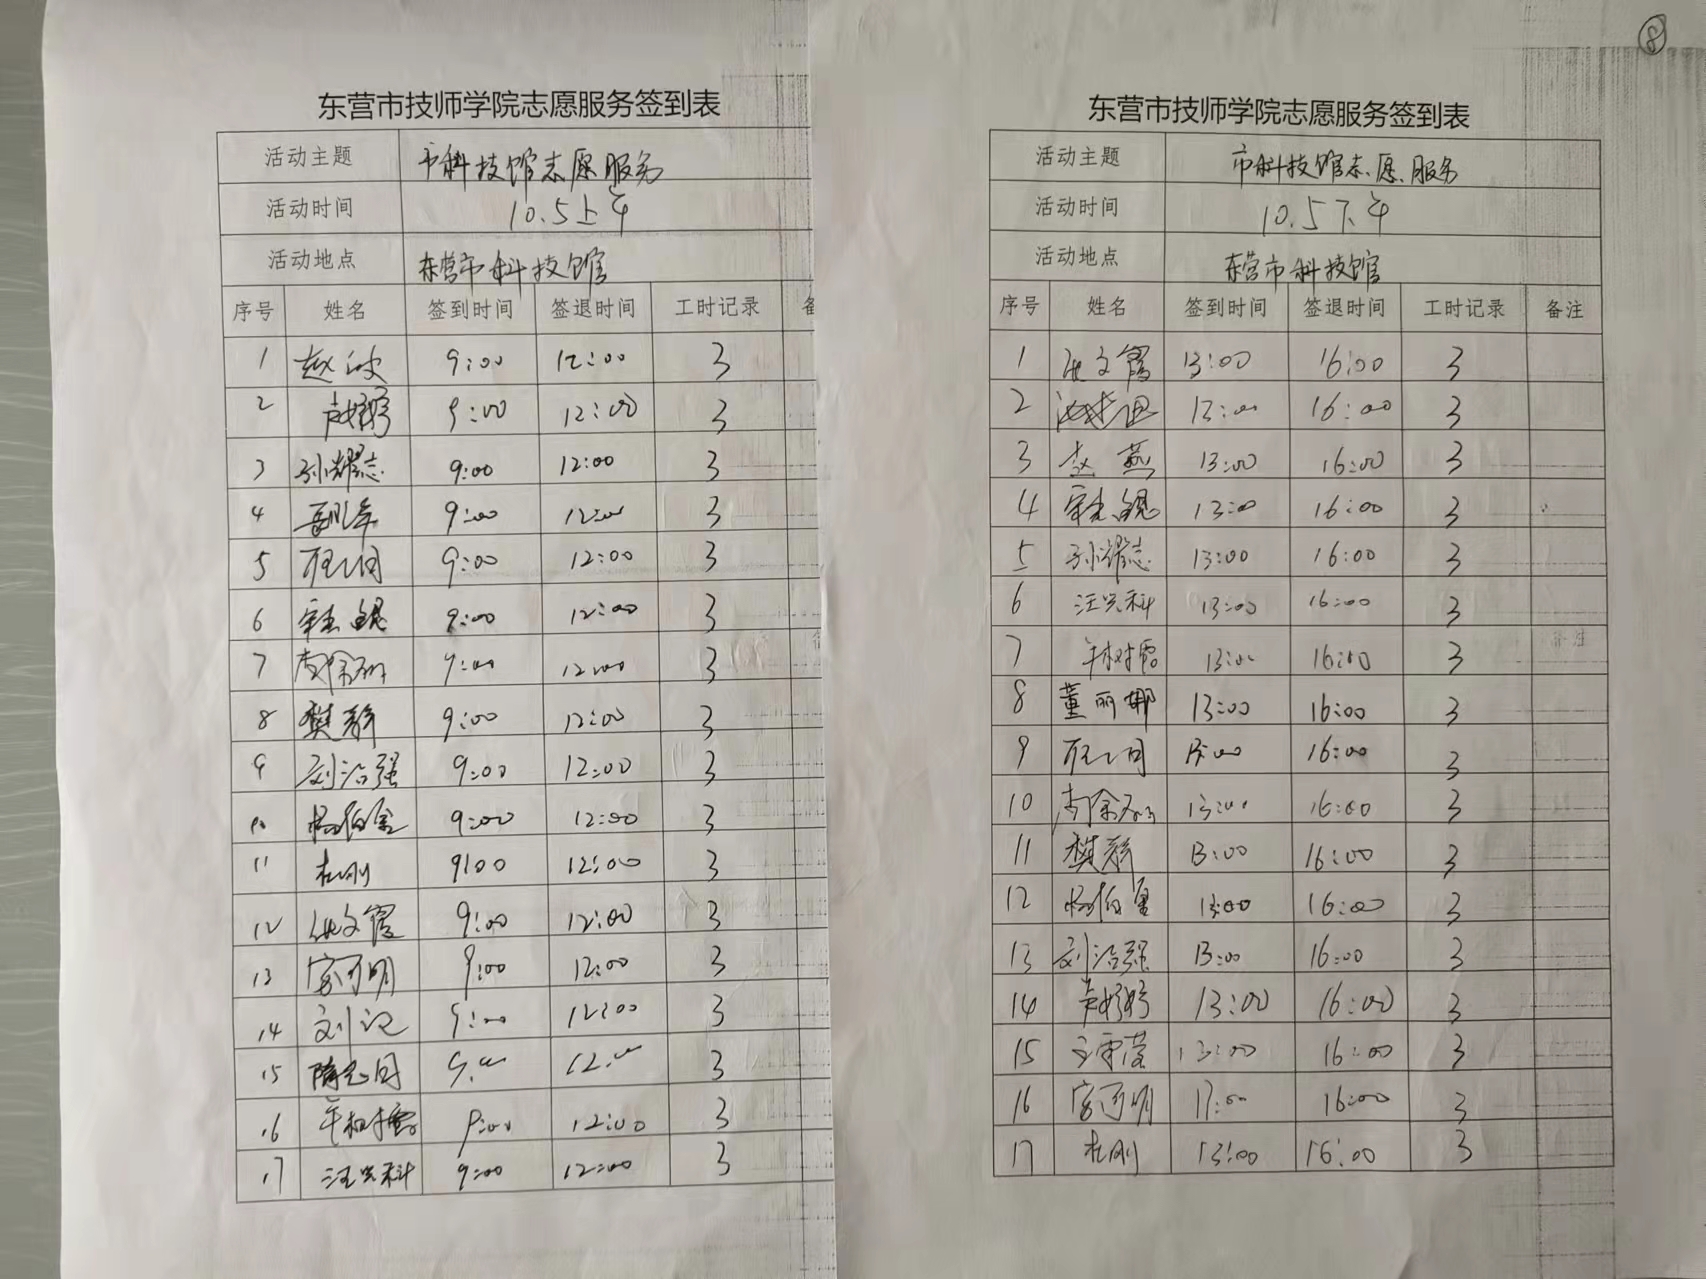 东营市技师学院志愿服务签到表
活动主题 市科技馆志愿服务
活动时间 10.5上午
活动地点 东营市科技馆
序号 姓名 签到时间 签退时间 工时记录
1 9:00 12:00 3
2 9:00 12:00 3
3 孙耀志 9:00 12:00 3
4 9:00 12:00 3
5 9:00 12:00 3
6 9:00 12:00 3
7 9:00 12:00 3
8 樊静 9:00 12:00 3
9 刘治强 9:00 12:00 3
10 9:00 12:00 3
11 杜刚 9:00 12:00 3
12 9:00 12:00 3
13 9:00 12:00 3
14 9:00 12:00 3
15 隋志国 9:00 12:00 3
16 9:00 12:00 3
17 9:00 12:00 3
8
东营市技师学院志愿服务签到表
活动主题 市科技馆志愿服务
活动时间 10.5下午
活动地点 东营市科技馆
序号 姓名 签到时间 签退时间 工时记录 备注
1 13:00 16:00 3
2 13:00 16:00 3
3 赵燕 13:00 16:00 3
4 13:00 16:00 3
5 孙耀志 13:00 16:00 3
6 13:00 16:00 3
7 13:00 16:00 3
8 董丽娜 13:00 16:00 3
9 13:00 16:00 3
10 13:00 16:00 3
11 樊静 13:00 16:00 3
12 13:00 16:00 3
13 刘治强 13:00 16:00 3
14 13:00 16:00 3
15 13:00 16:00 3
16 16:00 3
17 杜刚 13:00 16:00 3